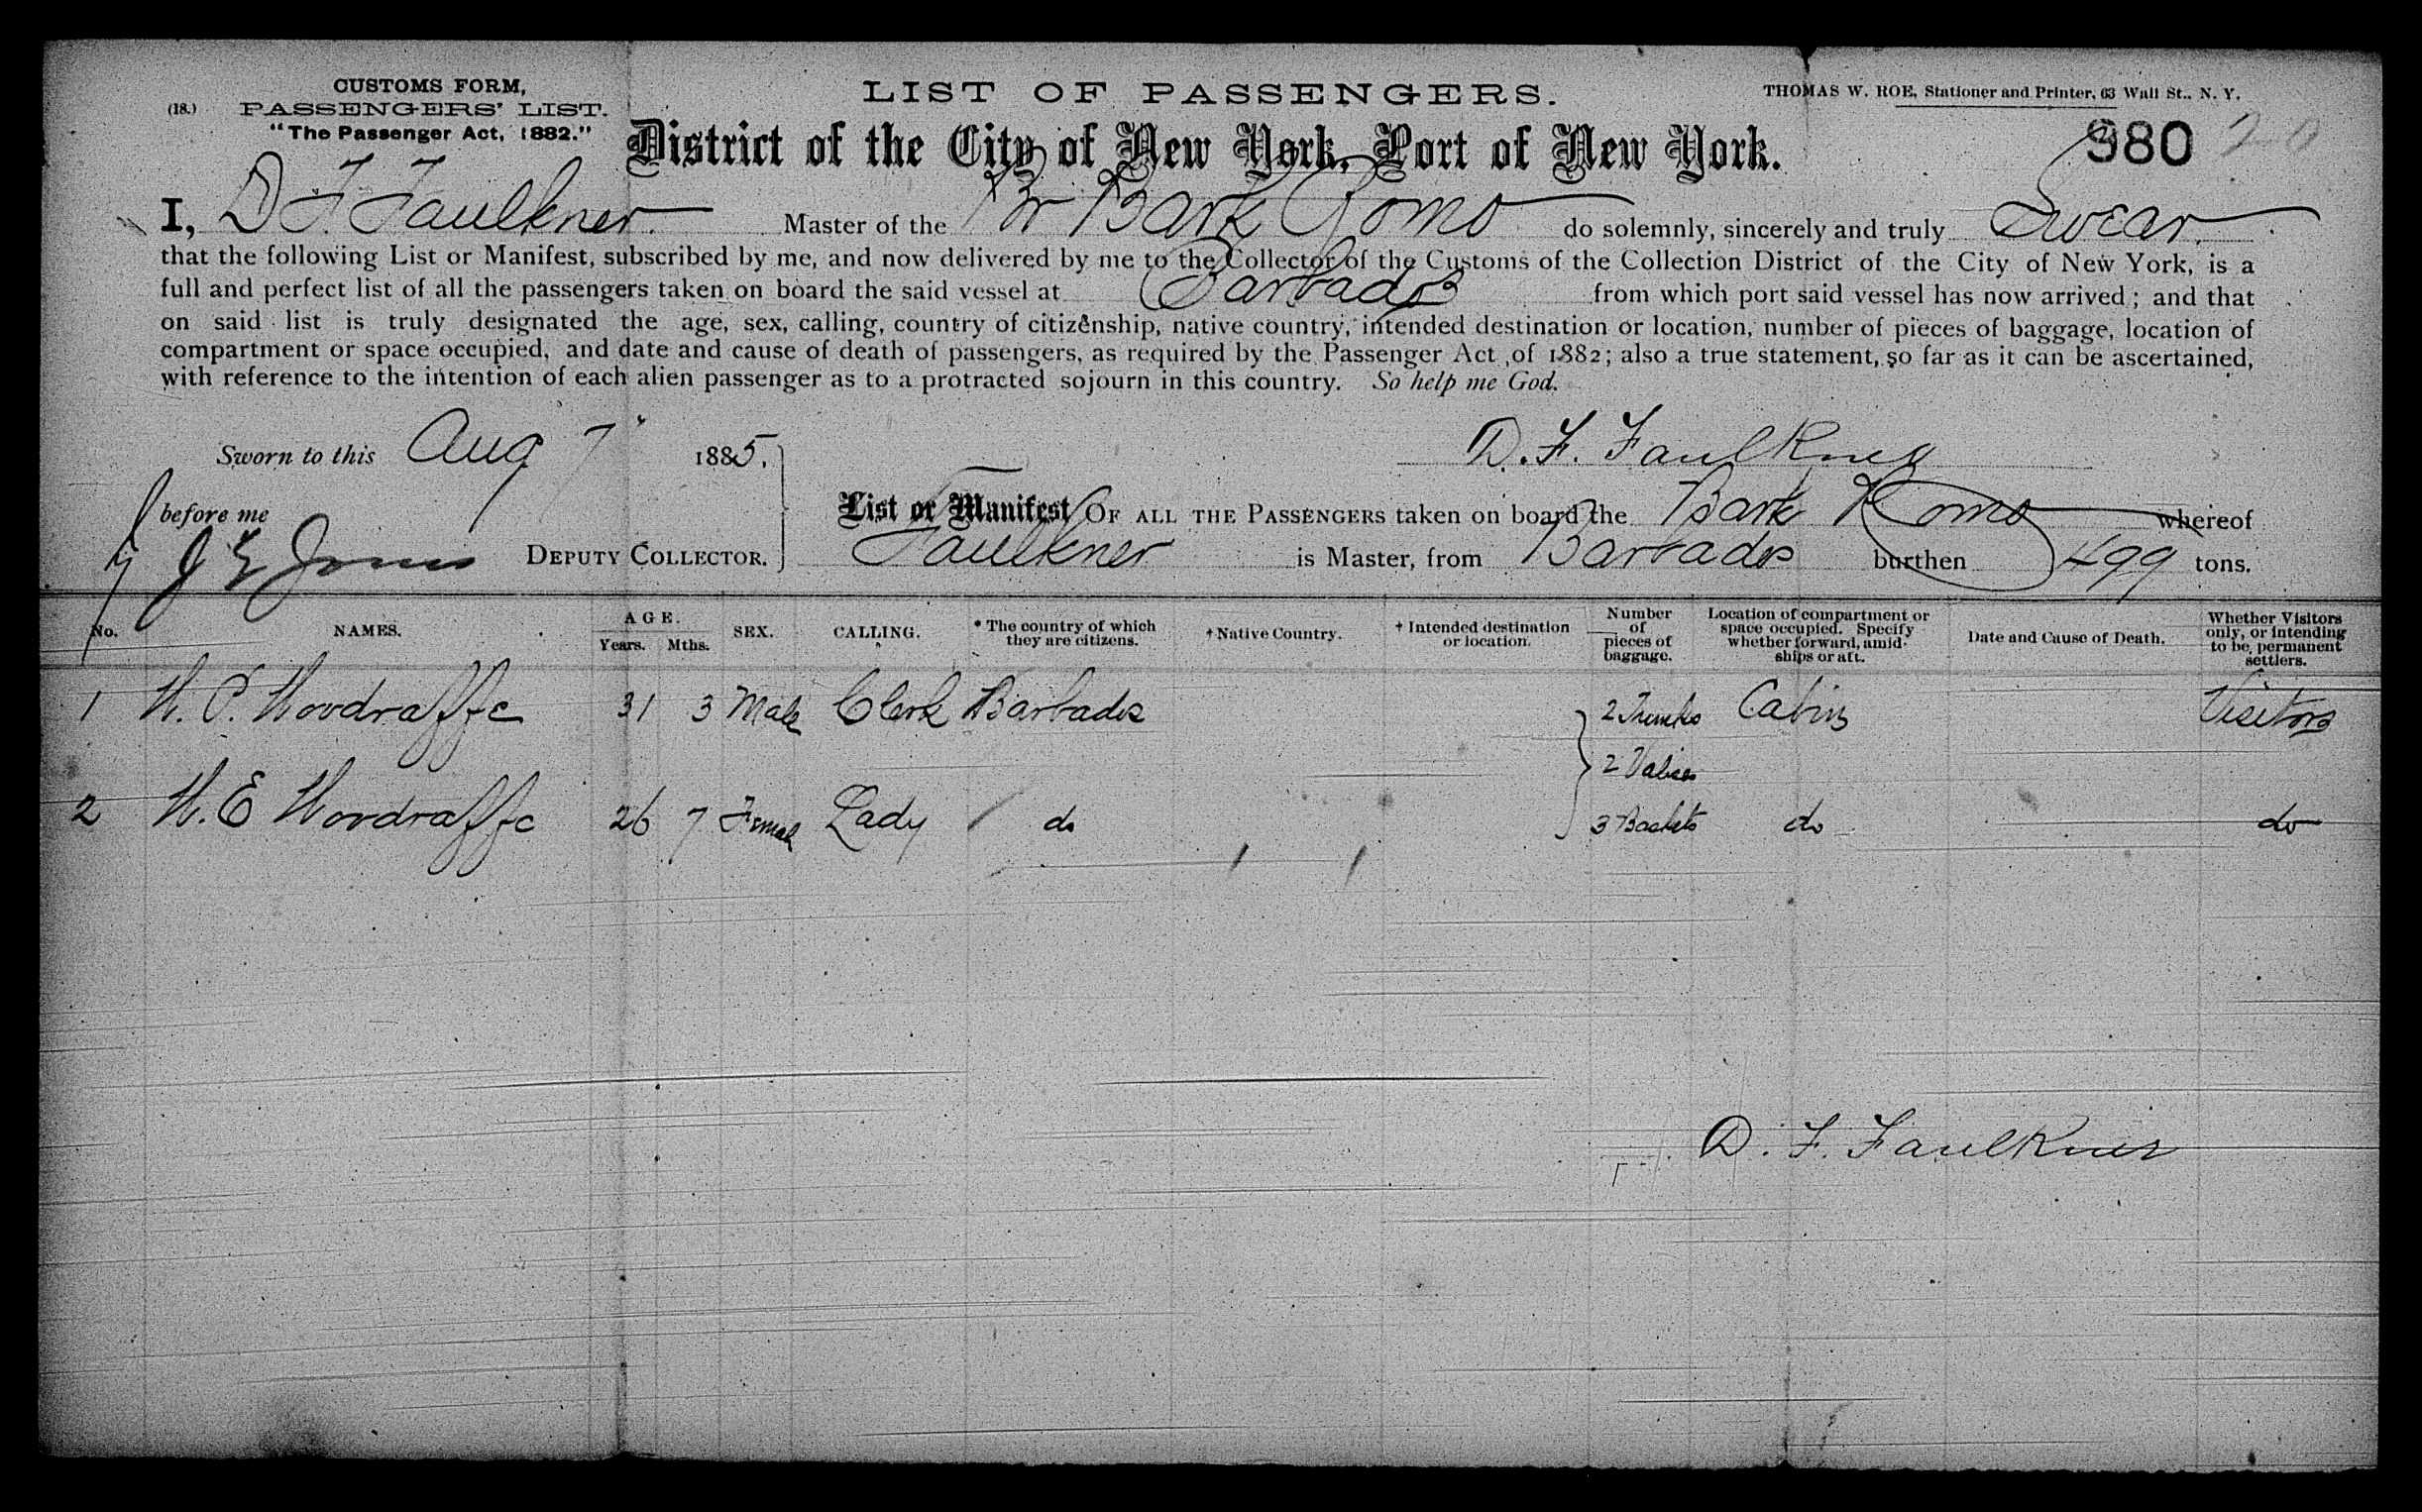 CUSTOMS FORM,
(18.) PASSENGERS' LIST.
"The Passenger Act, 1882."
LIST OF PASSENGERS.
THOMAS W. ROE, Stationer and Printer, 63 Wall St., N. Y.
District of the City of New York, Port of New York.
980 20
I, D F. Faulkner Master of the Br Bark Romo do solemnly, sincerely and truly Swear
that the following List or Manifest, subscribed by me, and now delivered by me to the Collector of the Customs of the Collection District of the City of New York, is a
full and perfect list of all the passengers taken on board the said vessel at Barbados from which port said vessel has now arrived; and that
on said list is truly designated the age, sex, calling, country of citizenship, native country, intended destination or location, number of pieces of baggage, location of
compartment or space occupied, and date and cause of death of passengers, as required by the Passenger Act of 1882; also a true statement, so far as it can be ascertained,
with reference to the intention of each alien passenger as to a protracted sojourn in this country. So help me God.
Sworn to this Aug 7" 1885.
D. F. Faulkner
before me
J E Jones DEPUTY COLLECTOR.
List or Manifest OF ALL THE PASSENGERS taken on board the Bark Romo whereof
Faulkner is Master, from Barbados burthen 499 tons.
No. NAMES. AGE. Years. Mths. SEX. CALLING. * The country of which they are citizens. † Native Country. † Intended destination or location. Number of pieces of baggage. Location of compartment or space occupied. Specify whether forward, amidships or aft. Date and Cause of Death. Whether Visitors only, or intending to be permanent settlers.
1 W. P. Woodraffe 31 3 Male Clerk Barbados 2 Trunks Cabin Visitors
2 Valises
2 W. E Woodraffe 26 7 Female Lady do 3 Baskets do do
D. F. Faulkner